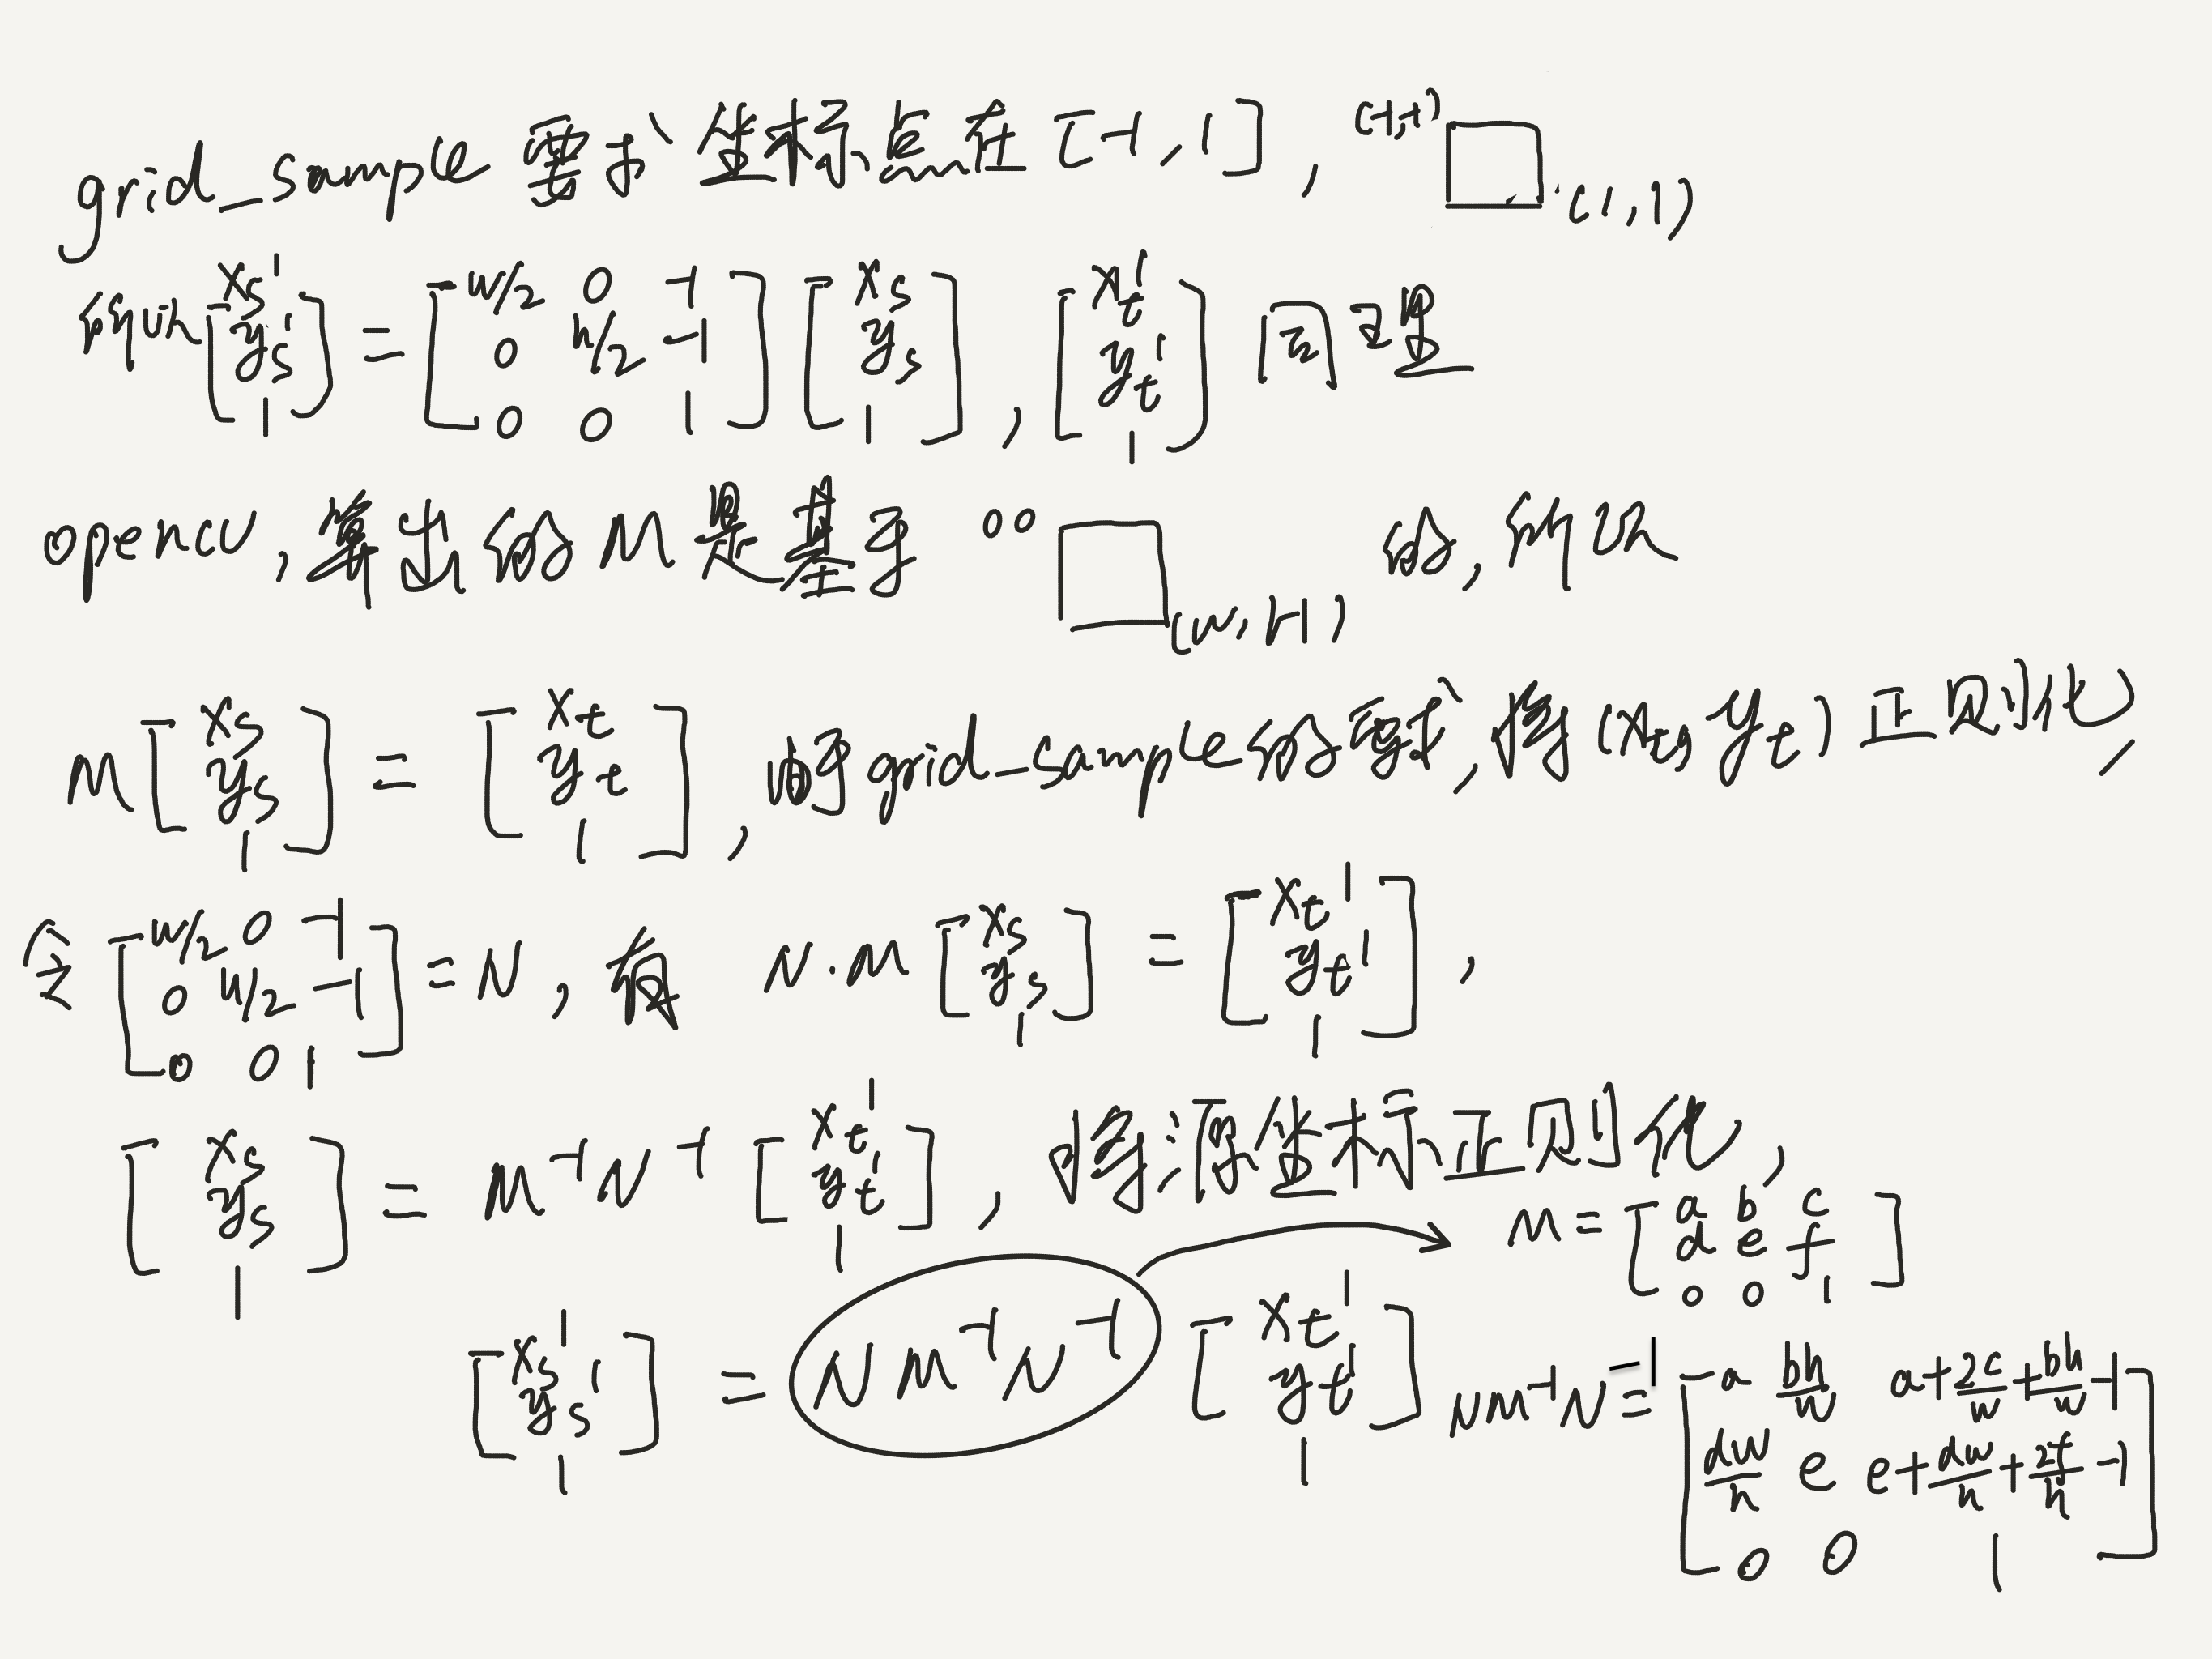 grid_sample 要求坐标点在 [-1, 1], (-1,-1) (1,1)
所以 [xs' ys' 1] = [w/2 0 -1 0 h/2 -1 0 0 1] [xs ys 1], [xt' yt' 1] 同理
opencv, 算出的 M 是基于 00 (w, H-1) 的, 所以
M [xs ys 1] = [xt yt 1], 由于 grid_sample 的要求, 将 (xt, yt) 正则化,
令 [w/2 0 -1 0 h/2 -1 0 0 1] = N, 有 N·M [xs ys 1] = [xt' yt' 1],
[xs ys 1] = M⁻¹N⁻¹ [xt' yt' 1], 将源坐标正则化,
M = [a b c d e f 0 0 1]
[xs' ys' 1] = NM⁻¹N⁻¹ [xt' yt' 1]
NM⁻¹N⁻¹ = [a bh/w a+2c/w+bh/w-1 dw/h e e+dw/h+2f/h-1 0 0 1]